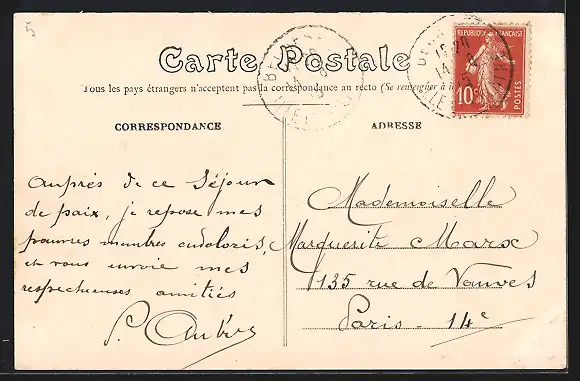 5
Carte Postale
Tous les pays étrangers n'acceptent pas la correspondance au recto (Se renseigner à
REPUBLIQUE FRANÇAISE
10c
POSTES
CORRESPONDANCE
ADRESSE
Auprès de ce séjour
de paix, je repose mes
pauvres membres endoloris,
et vous envoie mes
respectueuses amitiés
Mademoiselle
Marguerite Marx
135 rue de Vanves
Paris - 14e